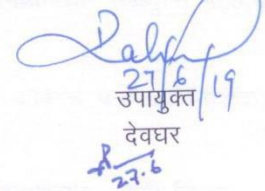 27/6/19
उपायुक्त
देवघर
27.6